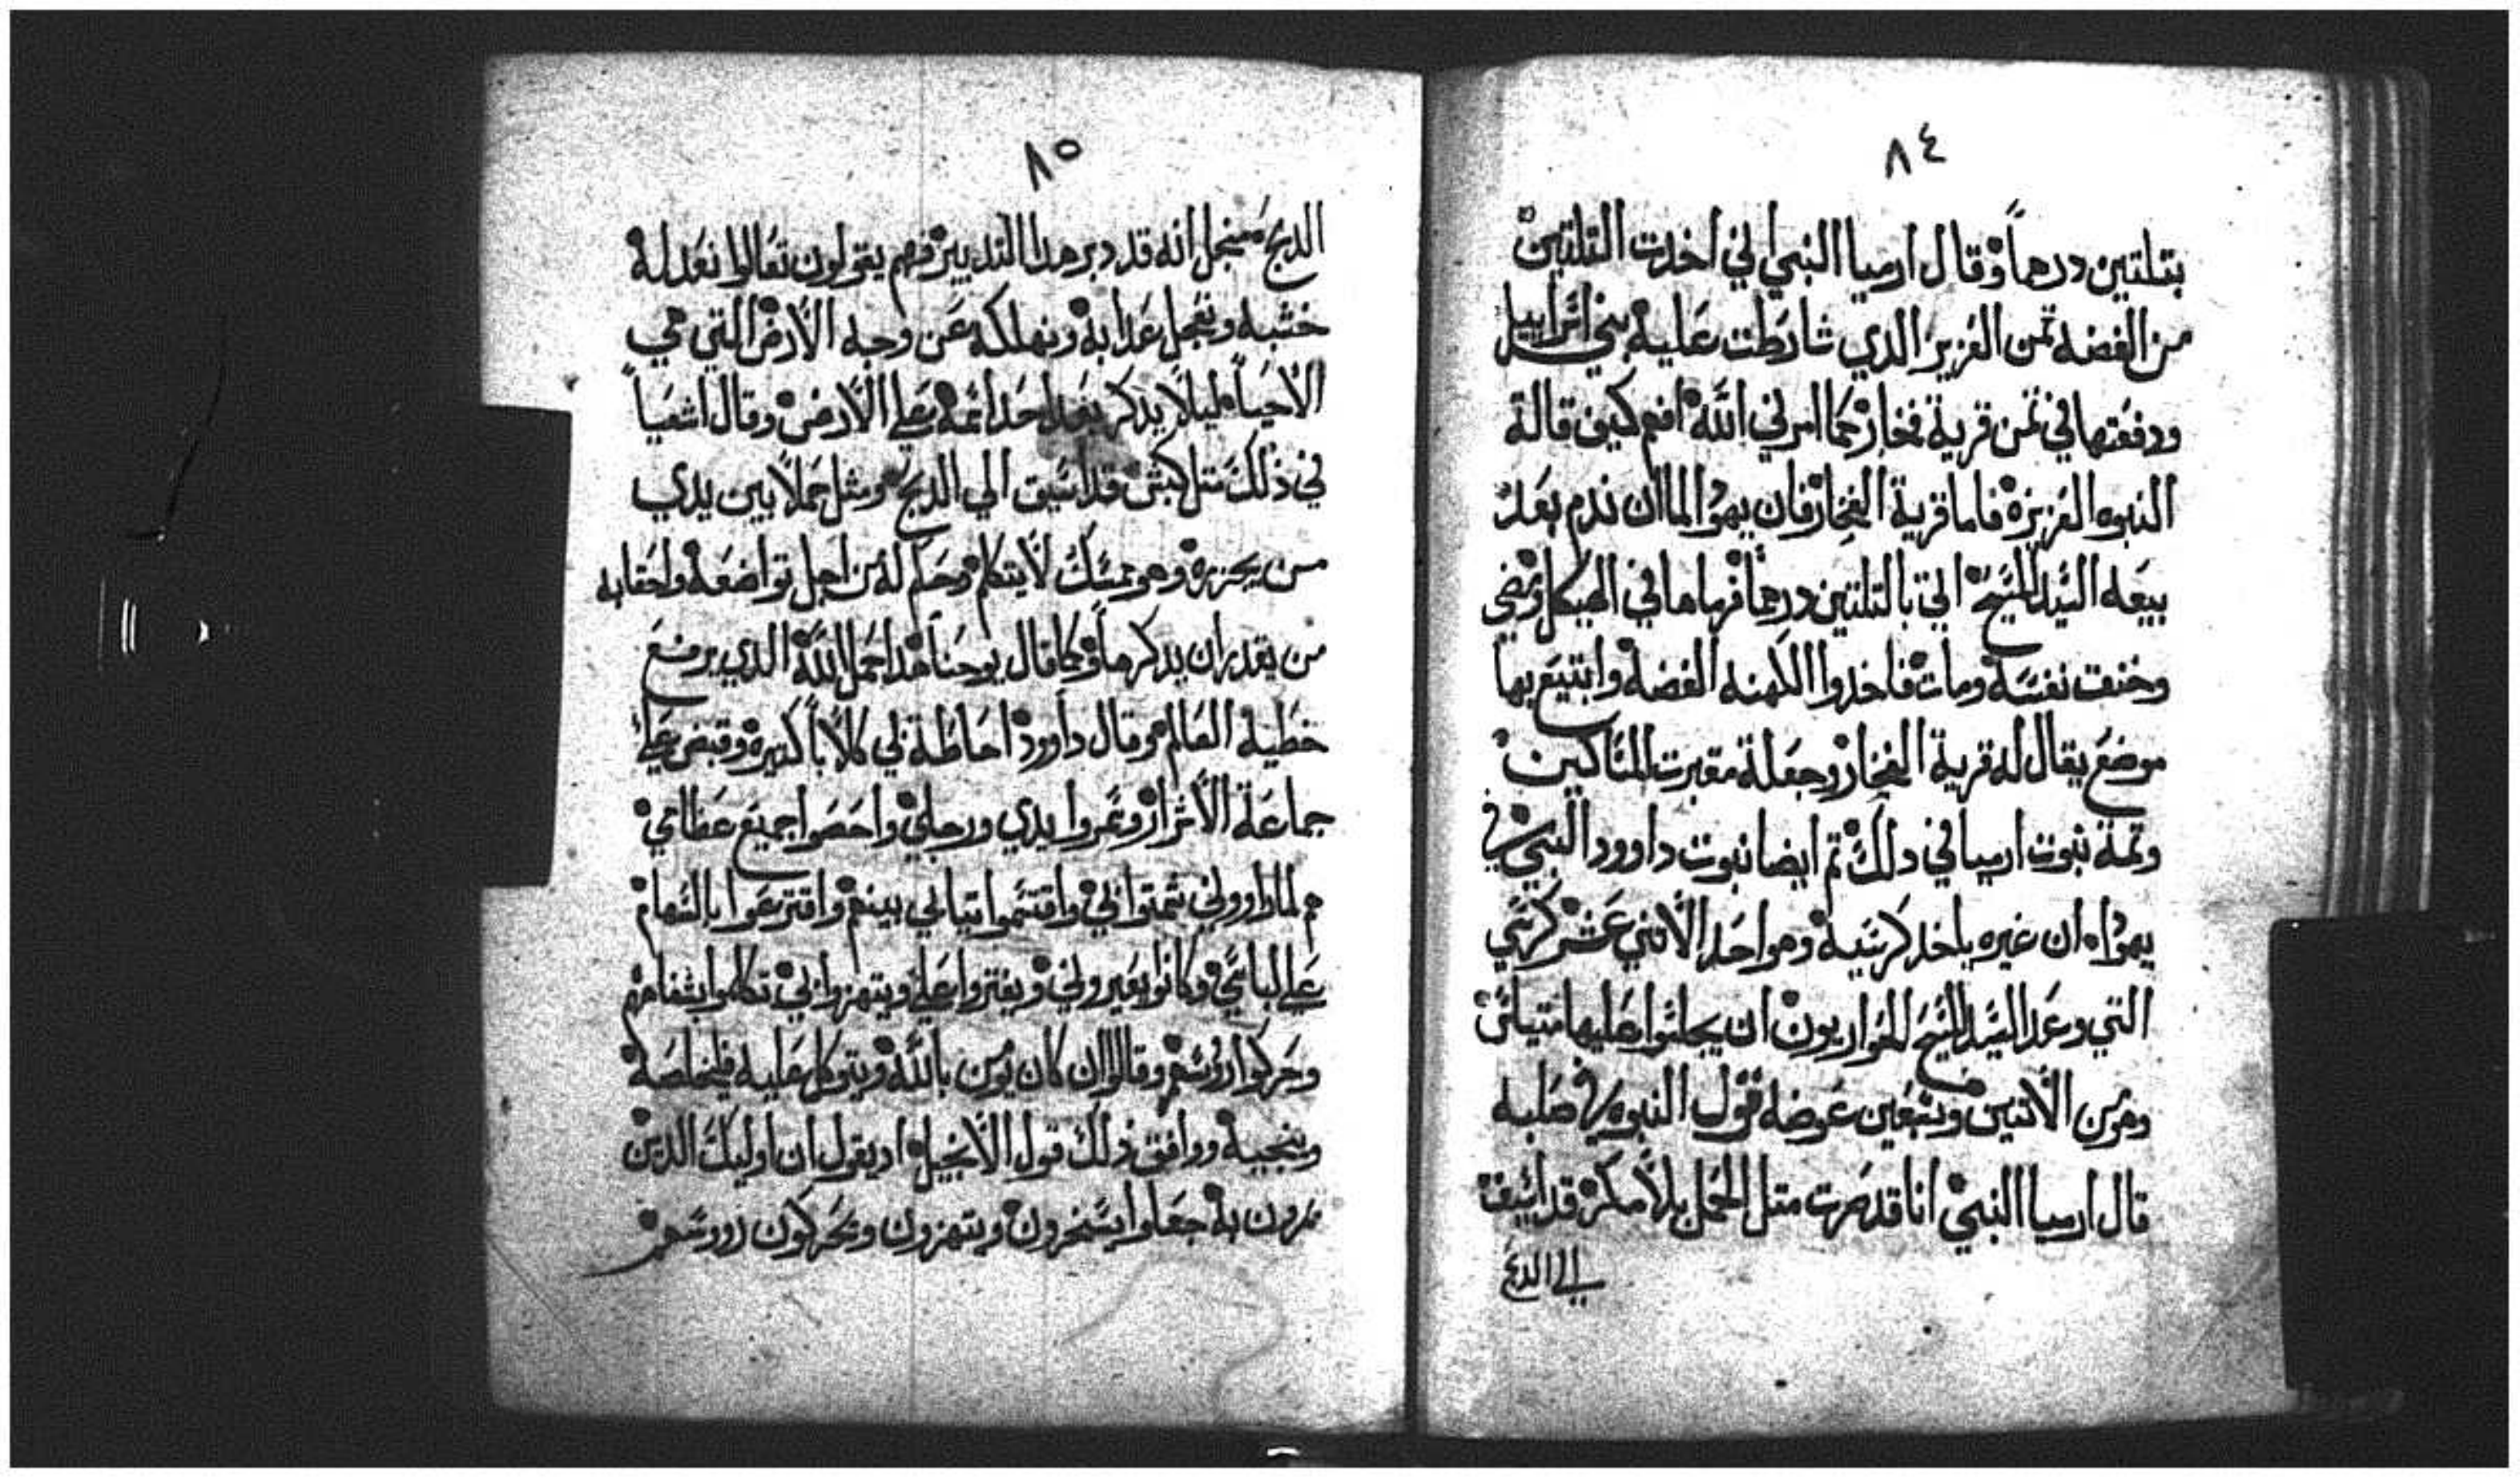 ٨٤
بتلتين درهماً وقال ارميا النبي اني اخدت التلتين
من الفضه تمن العزيز الذي شارطت عليه بني اسراييل
ودفعتها في تمن قرية فخار كما امرني الله افهم كيف قالة
النبوه العزيزه فاما قرية الفخار فان يهودا لما ان ندم بعد
بيعه السيد المسيح اتي بالتلتين درهماً فرماها في الهيكل ومضي
وخنق نفسه ومات فاخدوا الكهنه الفضه وابتيع بها
موضع يقال له قرية الفخار وجعلة مقبرت المساكين
وتمة نبوت ارميا في دلك تم ايضا نبوت داوود النبي في
يهودا ان غيره ياخد كرسيه وهو احد الاتني عشر كرسي
التي وعد السيد المسيح للحواريون ان يجلسوا عليها متياس
وهو من الاتنين وسبعين عوضه قول النبوه في صلبه
قال ارميا النبي انا قد صرت متل الحمل بلا مكر قد اسيق
الي الدبح
٨٥
الدبح منجل انه قد دبر هدا التدبير فهم يقولون تعالوا نعد له
خشبه ونعجل عدابه ونهلكه عن وجه الارض التي هي
الاحيا ليلا يدكر بعد احد اسمه علي الارض وقال اشعيا
في ذلك متل كبش قد اسيق الي الدبح ومثل حملا بين يدي
من يجزره وهو ممسك لا يتكلم وحكم له من اجل تواضعه واحقابه
من يقدر ان يدكرها وكما قال يوحنا هدا حمل الله الذي يرفع
خطية العالم وقال داوود احاطة لي كلابا كتيره وقبض علي
جماعة الاشرار وسمروا يدي ورجلي واحصوا جميع عظامي
هم لما راووني شمتوا بي واقتسموا تيابي بينهم واقترعوا بالسهام
علي لباسي وكانوا يعيروني ويفتروا علي ويتهزوا بي تكلموا بشفاههم
وحركوا رووسهم وقالوا ان كان يومن بالله ويتوكل عليه فليخلصه
وينجيه ووافق ذلك قول الانجيل اد يقول ان اوليك الدين
مرون به جعلوا يسخرون ويتهزون ويحركون رووسهم